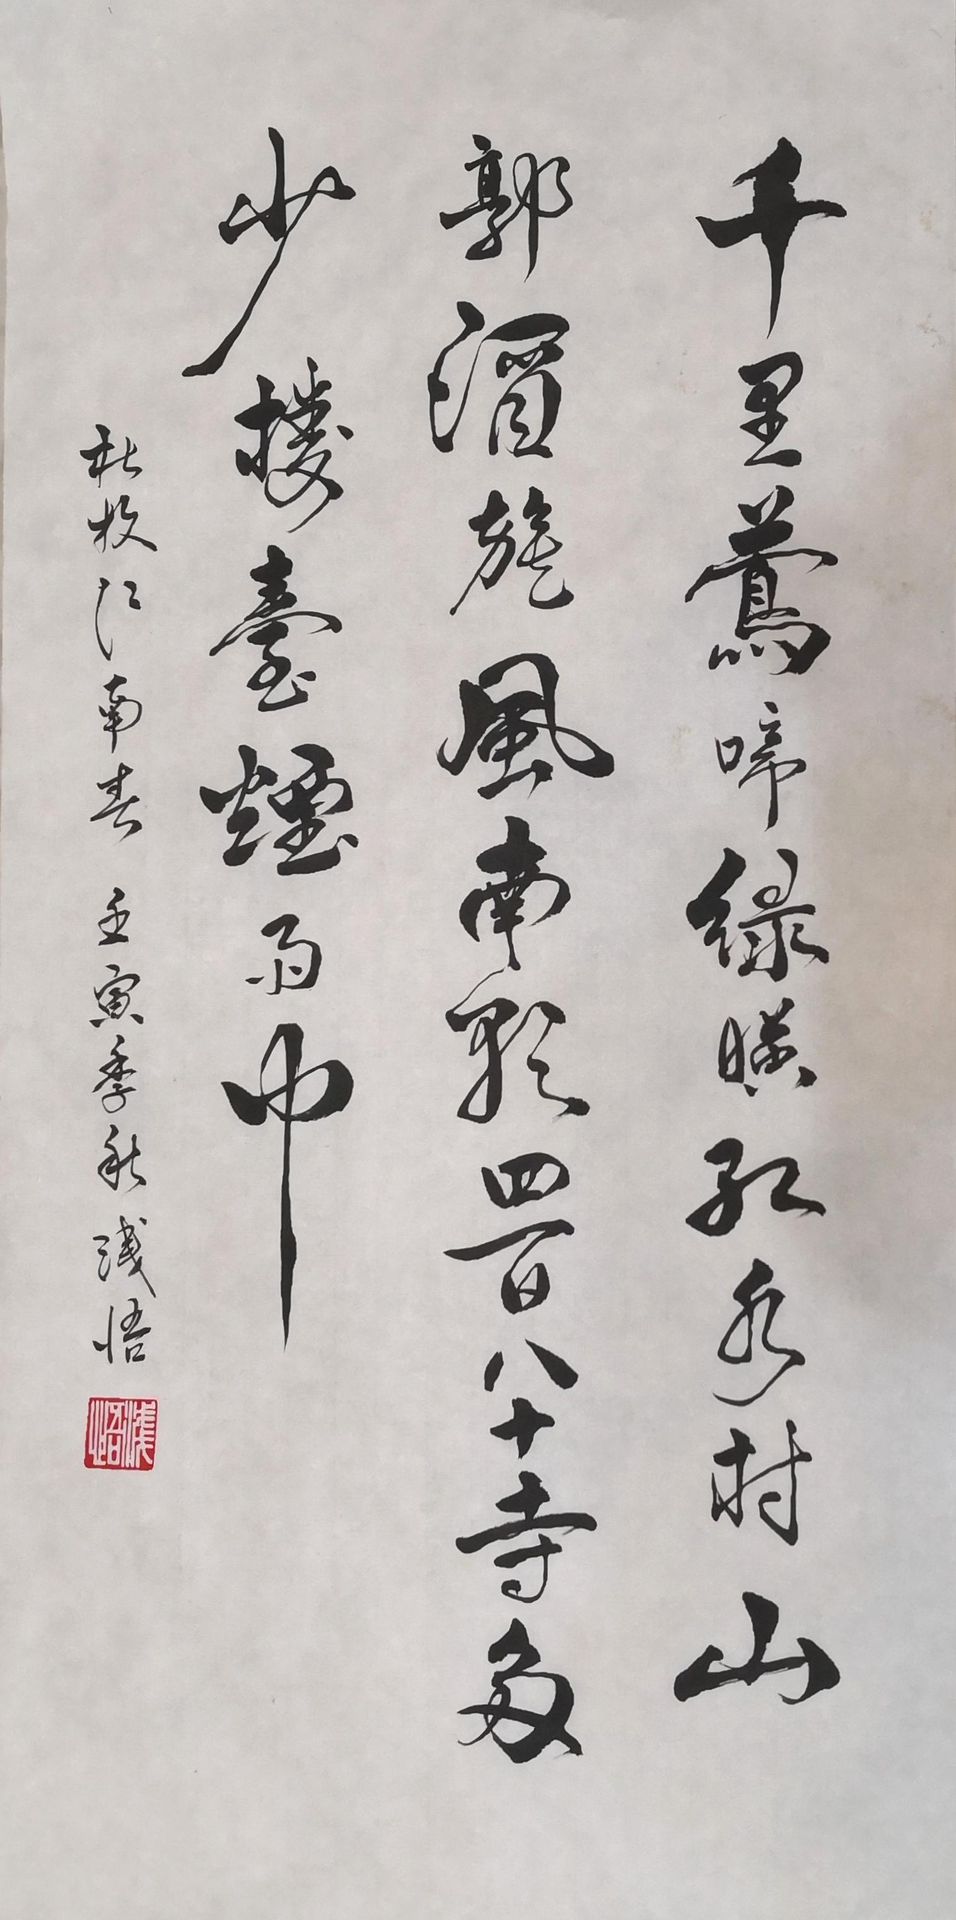 千里鶯啼綠映紅水村山
郭酒旗風南朝四百八十寺多
少樓臺煙雨中
杜牧江南春 壬寅季秋 浅悟
浅悟